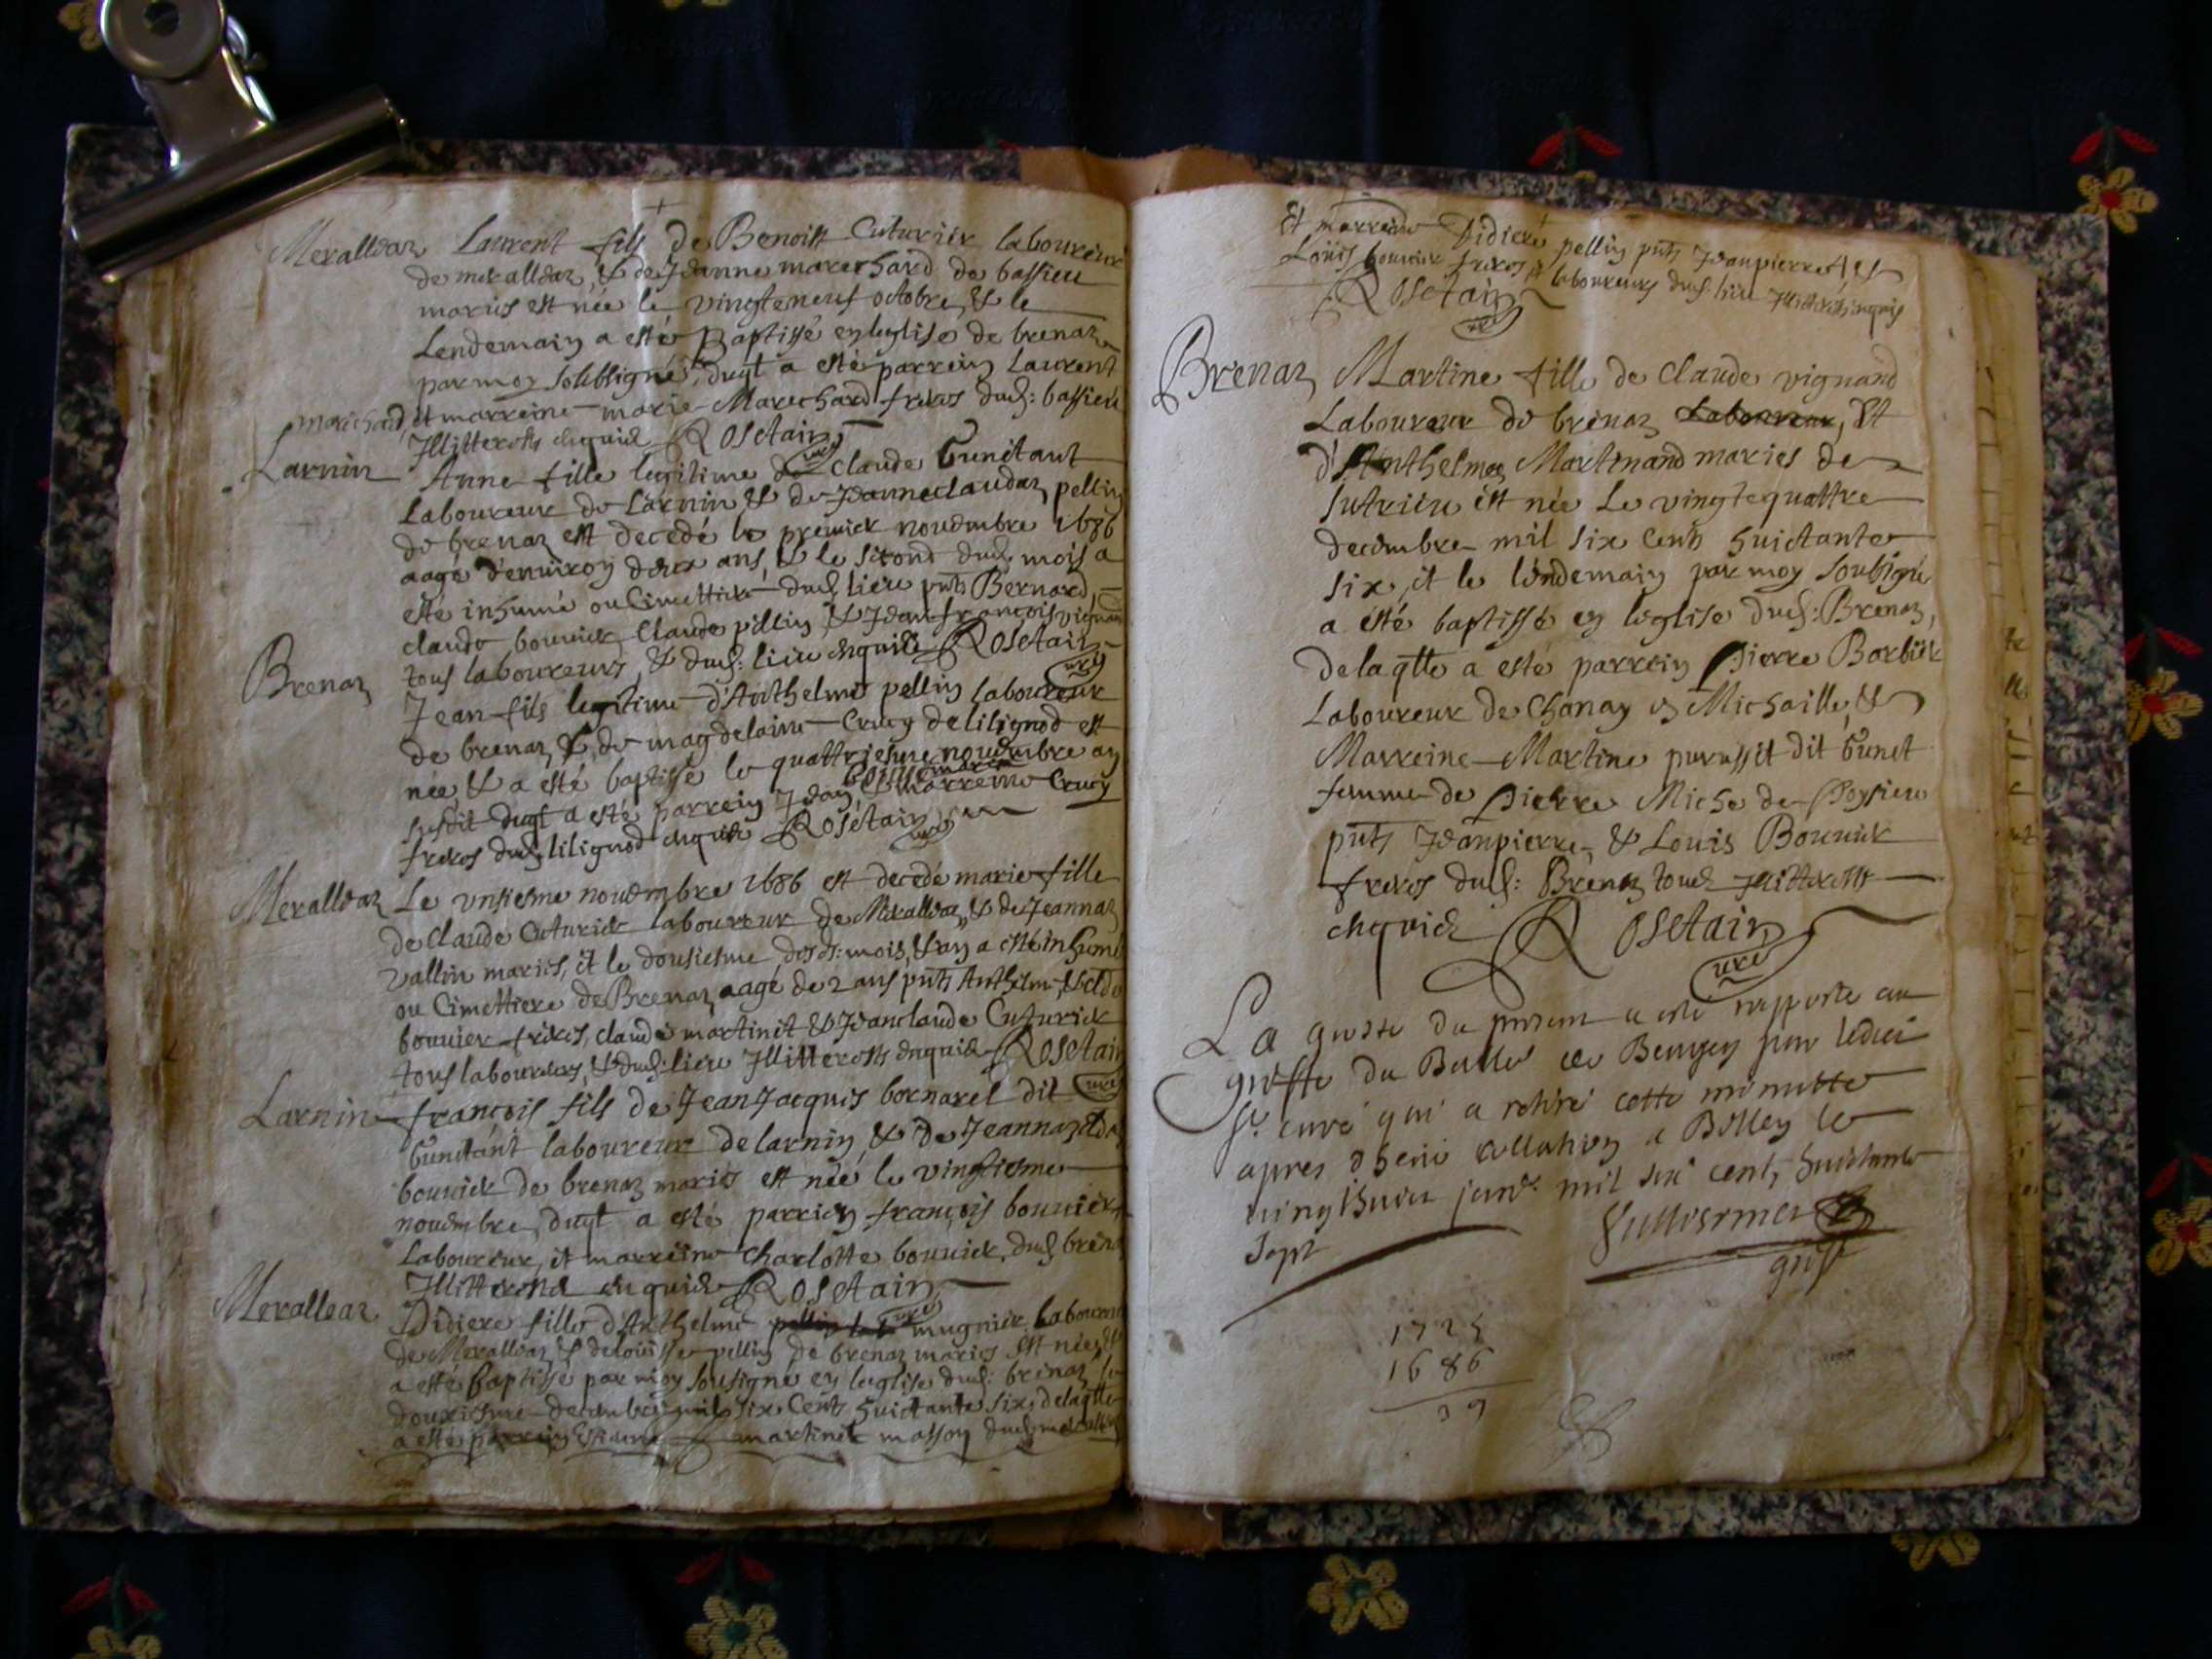 Meralleaz Laurent fils de Benoist Cuturier laboureur
de meralleaz, & de Jeanne mareschard de bassieu
mariés est née le vingteneuf octobre, & le
Lendemain a esté Baptissé en leglise de brenaz
par moy soubsigné, duql a esté parrein Laurent
marechard, et marreine marie Marechard freres dud: bassieu
Illitterés enquis Rosetain curé
Larnin Anne fille legitime de Claude Gunetant
Laboureur de Larnin & de Jeanneclaudaz pellin
de brenaz est decedé le premier novembre 1686
aagé d'environ deux ans, & le second dud mois a
esté inhumé ou Cimettiere dud lieu pnts Bernard,
claude bouvier Claude pellin & Jeanfrançois vignand
tous laboureurs, & dud: lieu enquis Rosetain curé
Brenaz Jean fils legitime d'Anthelme pellin laboureur
de brenaz & de magdelaine Crucy de lilignod est
née & a esté baptissé le quattriesme novembre an
susdit duql a esté parrein Jean, & marreine Crucy
freres dud lilignod enquis Rosetain curé
Meralleaz Le unsiesme novembre 1686 est decedé marie fille
de Claude Cuturier laboureur de Meralleaz, & de Jeannaz
vallin mariés, et le dousiesme desd: mois, & an a esté inhumé
ou Cimettiere de Brenaz aagé de 2 ans pnts Anthelme, & clde
bouvier freres, claude martinet & Jeanclaude Cuturier
tous laboureurs, & dud: lieu Illitterés enquis Rosetain curé
Larnin françois fils de Jean Jacques bornarel dit
Gunetant laboureur de larnin, & de Jeannaz clda
bouvier de brenaz mariés est née le vingtiesme
novembre, duql a esté parrien françois bouvier
Laboureur, et marreine Charlotte bouvier, dud brenaz
Illitterés enquis Rosetain curé
Meralleaz Didiere fille d'Anthelme mugnier laboureur
de Meralleaz & de louisse pellin de brenaz mariés est née, &
a esté baptissé par moy sousigné en leglise dud: brenaz le
douziesme decembre mil six Cents huictante six, delaqtte
a esté parrein Estienne martinet masson dud meralleaz
Et marreine Didiere pellin pnts Jeanpierre, &
Loüis bouvier freres laboureurs dud: lieu Illitterés enquis
Rosetain curé
Brenaz Martine fille de Claude vignand
Laboureur de brenaz Laboureur, Et
d'Anthelmaz Martinand mariés de
Sutrieu est née Le vingtequattre
decembre mil six Cents huictante
six, et le lendemain par moy soubsigné
a esté baptissé en leglise dud: Brenaz,
delaqtte a esté parrein pierre Barbier
Laboureur de Chanay en Michaille, &
Marreine Martine purusset dit Gunet
femme de pierre Miche de Poysieu
pnts Jeanpierre, & Louis Bouvier
freres dud: Brenaz tous Illitterés
enquis Rosetain curé
La grosse du present a esté rapportée au
greffe du Ballie de Beugey par ledict
sr. curé qui a retiré cette minutte
apres dheue collation a Belley le
vingthuict janv. mil six cents huictante
sept
greff
1725
1686
39